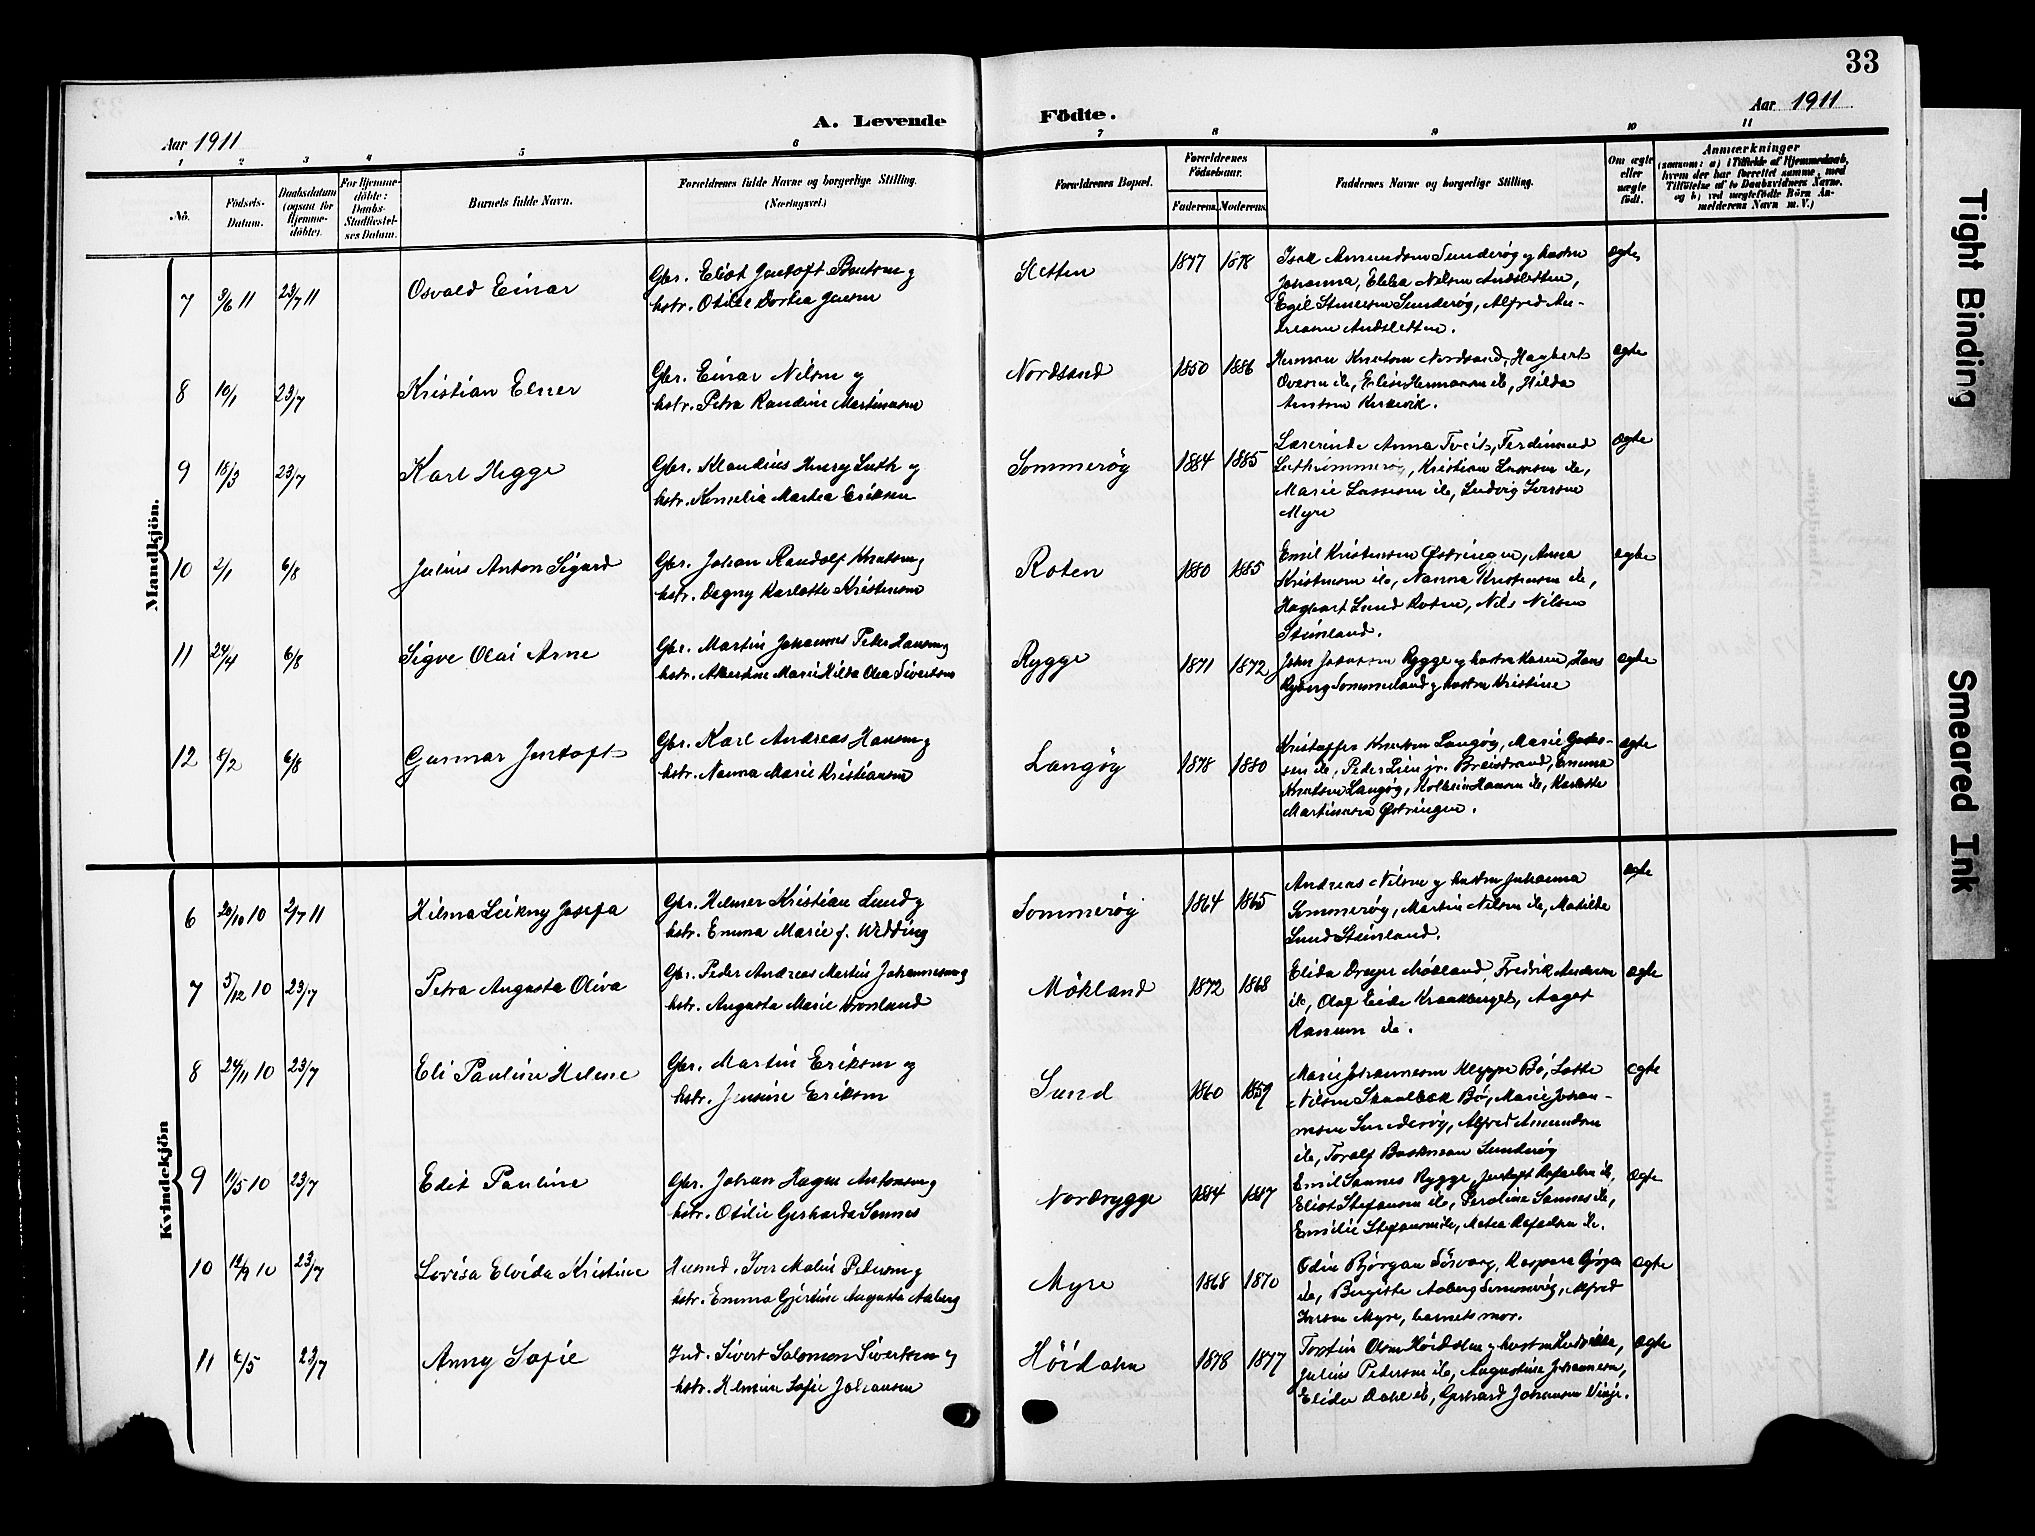 33
Aar 1911
A. Levende
Födte.
Aar 1911
1 2 3 4 5 6 7 8 9 10 11
No.
Födsels-Datum.
Daabsdatum (ogsaa for Hjemmedöbte).
For Hjemmedöbte: Daabs-Stadfæstelses Datum.
Barnets fulde Navn.
Forældrenes fulde Navne og borgerlige Stilling.
(Næringsvei.)
Forældrenes Bopæl.
Forældrenes Födselsaar.
Faderens. Moderens.
Faddernes Navne og borgerlige Stilling.
Om ægte eller uægte födt.
Anmærkninger
(saasom: a) i Tilfælde af Hjemmedaab,
hvem der har forrettet samme, med
Tilföielse af to Daabsvidners Navne,
og b) ved uægtefödte Börn An-
melderens Navn m. V.)
Mandkjön.
7 3/6 11 23/7 11 Osvald Einar
Gbr. Eliot Jentoft Bentsen og
hstr. Otilie Dortea Jensen
Sletten 1877 1878
Isak Amundsen Sunderøy og hustru
Johanna, Ebba Nilsen Andsletten,
Egil Steneson Sunderøy, Alfred An-
dreasen Andsletten.
ægte
8 10/1 23/7 Kristian Elner
Gbr. Einar Nilsen og
hstr. Petra Randine Martinussen
Nordsand 1850 1886
Herman Knutsen Nordsand, Hagbert
Ovesen ib, Elise Hermansen ib, Hilda
Antsen
ægte
9 18/3 23/7 Karl Hegge
Gbr. Klaudius Henry Luth og
hstr. Kornelia Martea Eriksen
Sommerøy 1884 1885
Lærerinde Anna Tveit, Ferdinand
Luth Sommerøy, Kristian Lassesen ib,
Marie Lassesen ib, Ludvig Iversen
Myre
ægte
10 2/1 6/8 Julius Anton Sigurd
Gbr. Johan Randolf Knutsen og
hstr. Dagny Karlotte Kristensen
Roten 1880 1885
Emil Kristensen Østringen, Anna
Kristensen ib, Nanna Kristensen ib,
Hagbart Lund Roten, Nils Nilsen
Steinland.
ægte
11 24/4 6/8 Sigve Olai Arne
Gbr. Martin Johannes Peter Hansen og
hstr. Albertine Marie Hilda Olea Sivertsen
Rygge 1871 1872
John Johnsen Rygge og hustru Karen, Hans
Ryberg Sommerland og hustru Kristine
ægte
12 8/2 6/8 Gunnar Jentoft
Gbr. Karl Andreas Hansen og
hstr. Nanna Marie Kristiansen
Langøy 1878 1880
Kristoffer Knutsen Langøy, Marie
sen ib, Peder Lien jr. Breistrand, Emma
Knutsen Langøy, Kolbein Hansen ib, Karlotte
Martinsen Østringen.
ægte
Kvindekjön
6 20/10 10 2/7 11 Hilma Leikny Josefa
Gbr. Helmer Kristian Lund og
hstr. Emma Marie f. Wedding
Sommerøy 1864 1865
Andreas Nilsen og hustru Johanna
Sommerøy, Martin Nilsen ib, Matilde
Lund Steinland.
ægte
7 5/12 10 23/7 Petra Augusta Oliva
Gbr. Peder Andreas Martin Johannesen og
hstr. Augusta Marie Kronland
Mökland 1872 1868
Elida Dreyer Mökland, Fredrik Andersen
ib, Olaf Eide Kraakberget, Aagot
Ranum ib.
ægte
8 24/11 10 23/7 Eli Pauline Helene
Gbr. Martin Eriksen og
hstr. Jensine Eriksen
Sund 1860 1859
Marie Johannesen Kleppe Bö, Lotte
Nilsen Skaalbak Bö, Marie Johan-
nesen Sunderøy, Alfred Amundsen
ib, Toralf Sunderøy
ægte
9 11/5 10 23/7 Edit Pauline
Gbr. Johan Hagen Antonsen og
hstr. Otilie Gerharda Sannes
Nordrygge 1884 1887
Emil Sannes Rygge, Jentoft Rafaelsen ib,
Eliot Stefansen ib, Peroline Sannes ib,
Emilie Stefansen ib, Matea Rafaelsen ib.
ægte
10 12/9 10 23/7 Lovisa Elvida Kristine
Husmd. Iver Malin Pedersen og
hstr. Emma Gjertine Augusta Aaberg
Myre 1868 1870
Odin Bjørgan Sörvaag, Kaspara
ib, Bergitte Aaberg Sommerøy, Alfred
Iversen Myre, barnets mor.
ægte
11 6/5 23/7 Anny Sofie
Ind. Sivert Salomon Sivertsen og
hstr. Helmine Sofie Johansen
Höidahn 1878 1877
Torstin Olsen Höidalen og hustru Ludvikka,
Julius Pedersen ib, Augustine Johannesen,
Elida Dahl ib, Gerhard Johansen Vinje.
ægte
Tight Binding
Smeared Ink